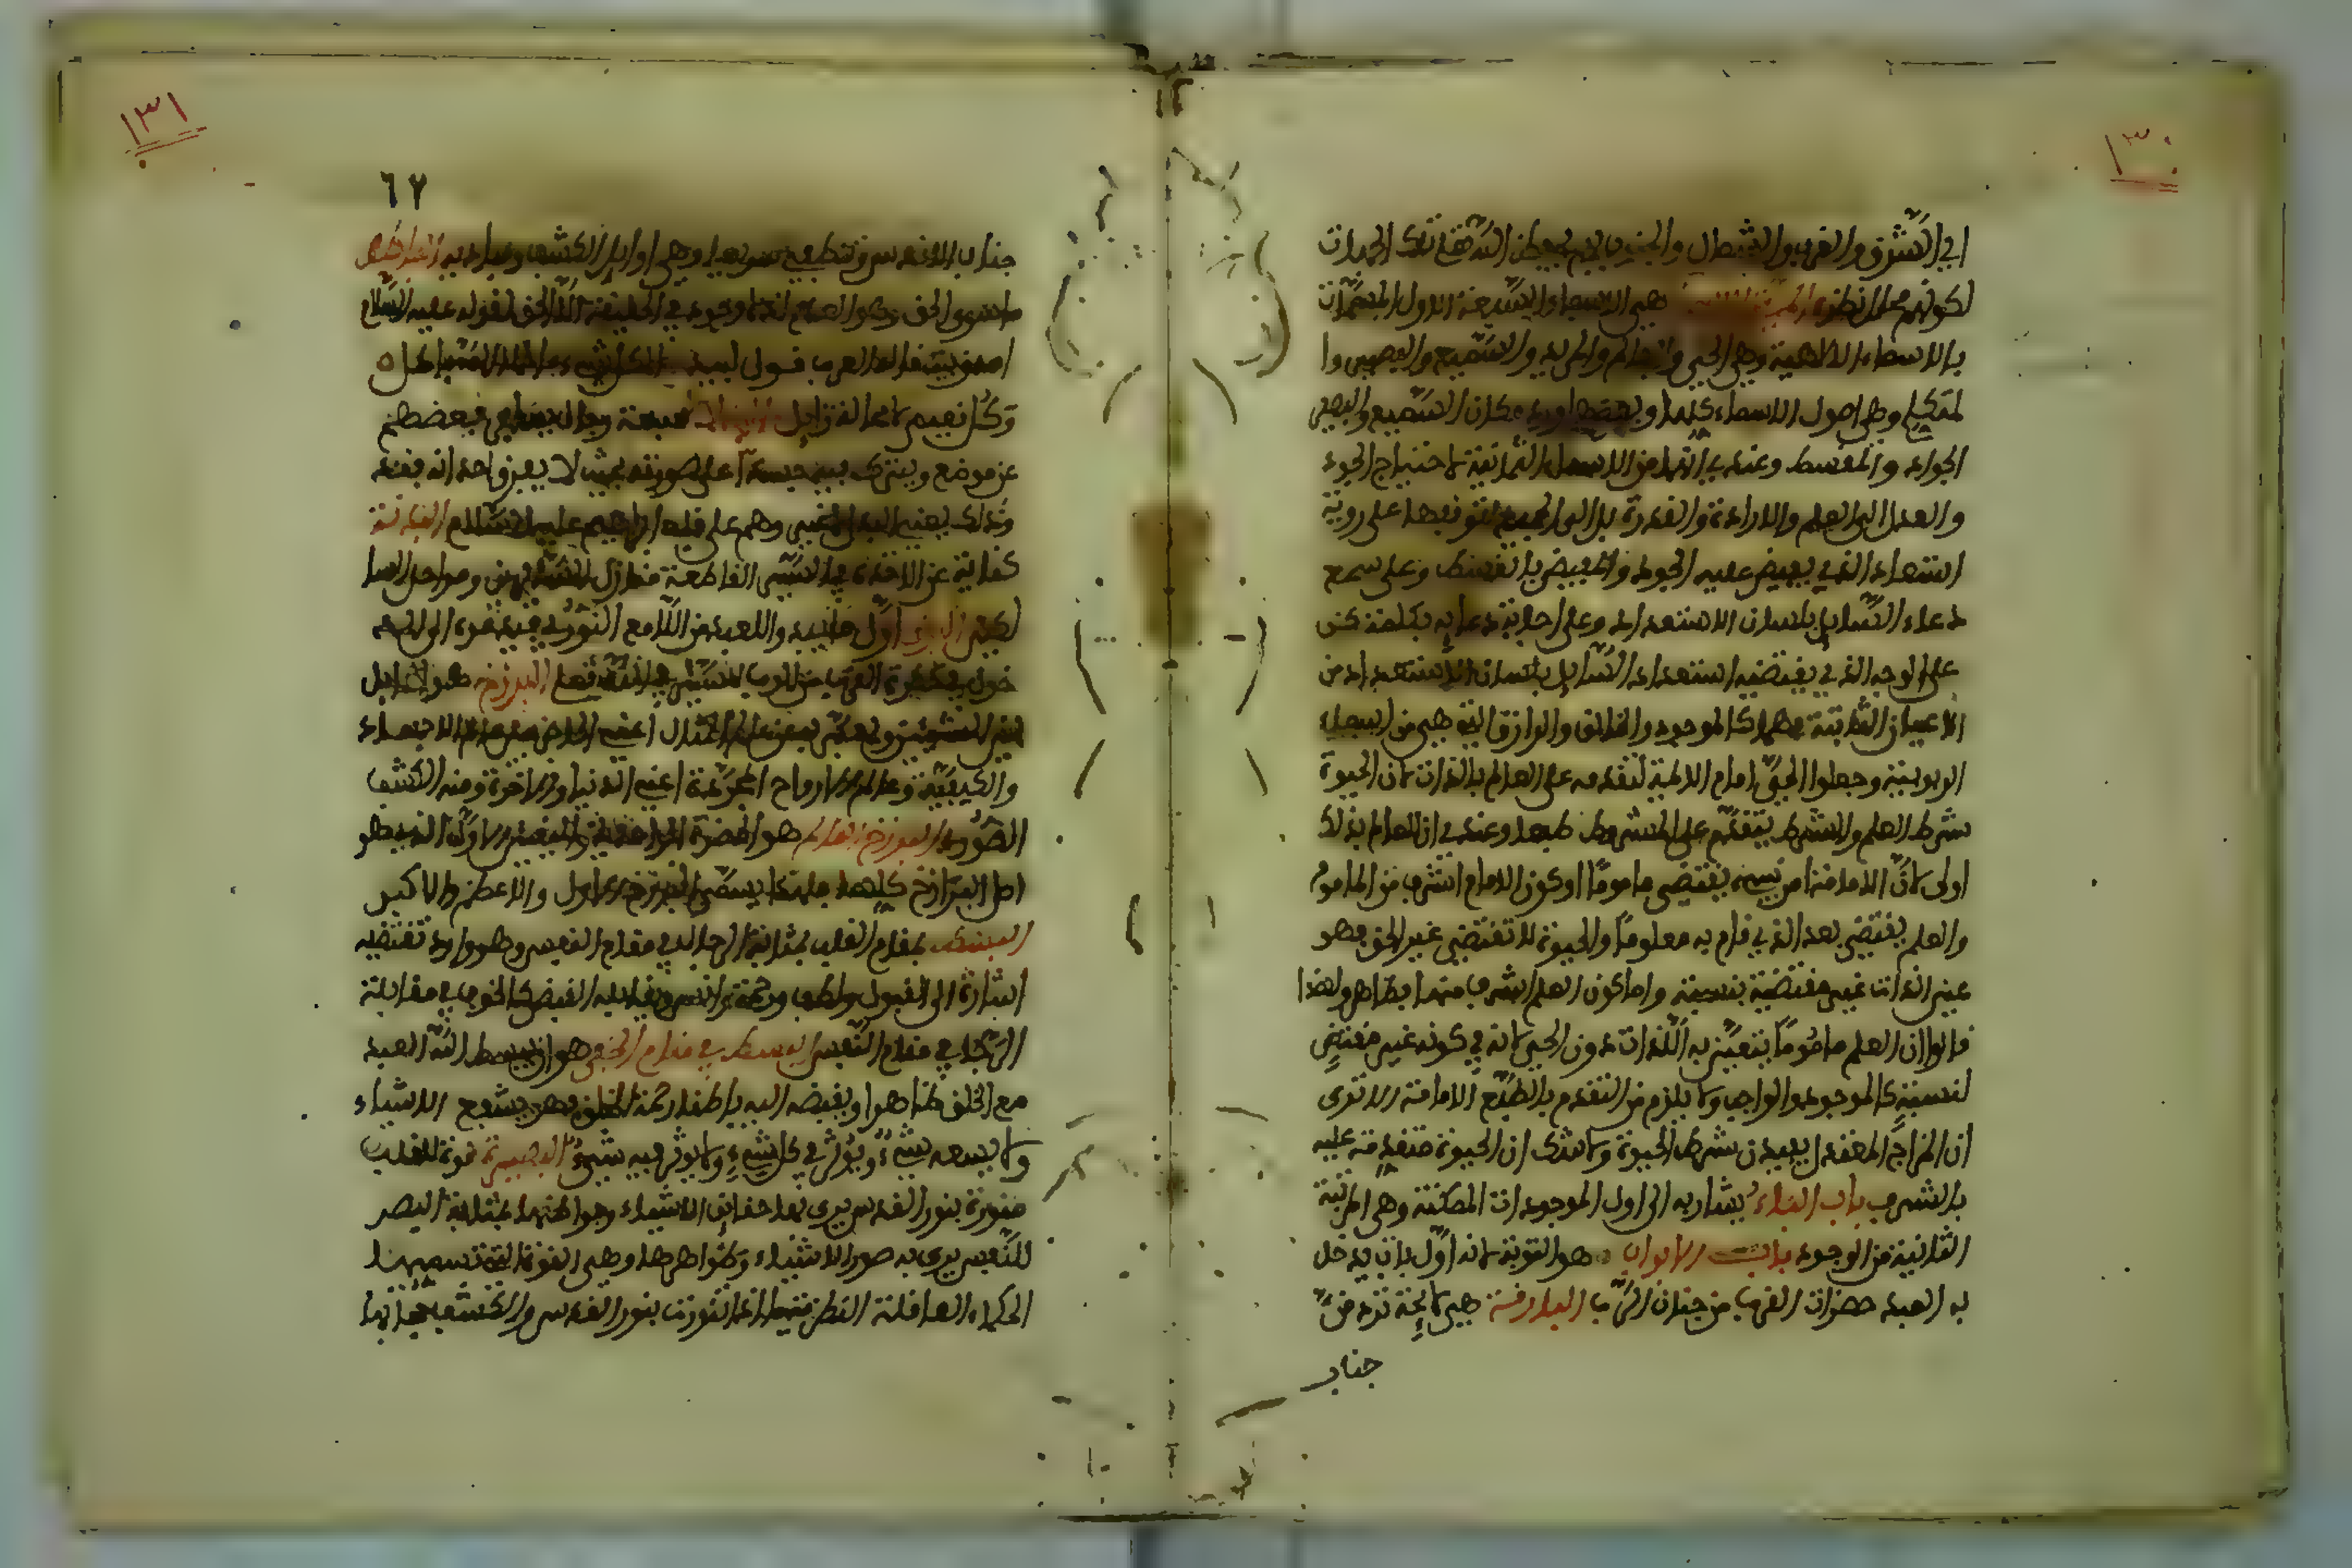 ١٣٠
اي الشرق والغرب والشمال والجنوب بهم يحفظ الله تعالى تلك الجهات
لكونهم محل نظره هي الاسماء السبعة الاول المسماة
بالاسماء الالهية وهي الحي والعالم والمريد والسميع والبصير وا
لمتكلم وهي اصول الاسماء كلها وبعضهم اورد مكان السميع والبصير
الجواد والمقسط وعندي انهما من الاسماء الثانية لاحتياج الجود
والعدل الى العلم والارادة والقدرة بل الى الجميع لتوقفهما على روية
استعداد الذي يفيض عليه الجود والفيض بالقسط وعلى سمع
دعاء السايل بلسان الاستعداد وعلى اجابة دعايه بكلمة كن
على الوجه الذي يقتضيه استعداد السايل بلسان الاستعداد من
الاعيان الثابتة فهما كالموجود والخالق والرازق التي هي من اسماء
الربوبية وجعلوا الحي امام الايمة لتقدمه على العالم بالذات لان الحيوة
شرط العلم والشرط يتقدم على المشروط طبعا وعندي ان العالم بذلك
اولى لان الامامة امر نسبي يقتضي ماموما وكون الامام اشرف من الماموم
والعلم يقتضي بعد الذي قام به معلوما والحيوة لا تقتضي غير الحي فهو
عين الذات غير مقتضية نسبة واما كون العلم اشرف منها فظاهر ولهذا
قالوا ان العلم ما يتعين به الذات دون الحي لانه في كونه غير مقتض
لنسبة كالموجود والواجب ولا يلزم من التقدم بالطبع الامامة الا ترى
ان المزاج المعتدل للبدن شرط الحيوة ولا شك ان الحيوة متقدمة عليه
بالشرف باب الباء يشار به الى اول الموجودات الممكنة وهي المرتبة
الثانية من الوجود باب الابواب هو التوبة لانه اول باب يدخل
به العبد حضرات القرب من جناب الرب البارقة هي لايحة ترد من
جناب
١٣١
٦٧
جناب الاقدس وتنطفي سريعا وهي اوايل الكشف ومباديه الباطل
ما سوى الحق وهو العدم اذ لا وجود في الحقيقة الا للحق لقوله عليه السلام
اصدق بيت قاله العرب قول لبيد الا كل شيء ما خلا الله باطل
وكل نعيم لا محالة زايل سبعة رجال يسافر بعضهم
عن موضع ويترك فيه جسدا على صورته بحيث لا يعرف احد انه فقد
وذلك يعني البدل لا غير وهم على قلب ابراهيم عليه السلام البدنة
كناية عن الاخذة في السير القاطعة منازل السايرين ومراحل السا
لكين اول ما يبدو للعبد من اللامع النوري فيدعوه الى الد
خول في حضرة القرب من الرب للسير في الله تعالى البرزخ هو الحايل
بين الشيئين ويعبر به عن عالم المثال اعني الحاجز من الاجساد
والكثيفة وعالم الارواح المجردة اعني الدنيا والاخرة ومنه الكشف
الصوري البرزخ الجامع هو الحضرة الواحدية والتعين الاول الذي هو
اصل البرازخ كلها فلهذا يسمى البرزخ الاول والاعظم والاكبر
البسط في مقام القلب بمثابة الرجاء في مقام النفس وهو وارد تقتضيه
اشارة الى القبول ولطف ورحمة وانس ويقابله القبض كالخوف في مقابلة
الرجاء في مقام النفس البسط في مقام الخفي هو ان يبسط الله العبد
مع الخلق ظاهرا ويقبضه اليه باطنا رحمة للخلق فهو يسع الاشياء
ولا يسعه شيء ويؤثر في كل شيء ولا يؤثر فيه شيء البصيرة قوة للقلب
منورة بنور القدس يرى بها حقايق الاشياء وبواطنها بمثابة البصر
للنفس يرى به صور الاشياء وظواهرها وهي القوة التي تسميها
الحكماء العاقلة النظرية اذا تنورت بنور القدس وانكشف حجابها